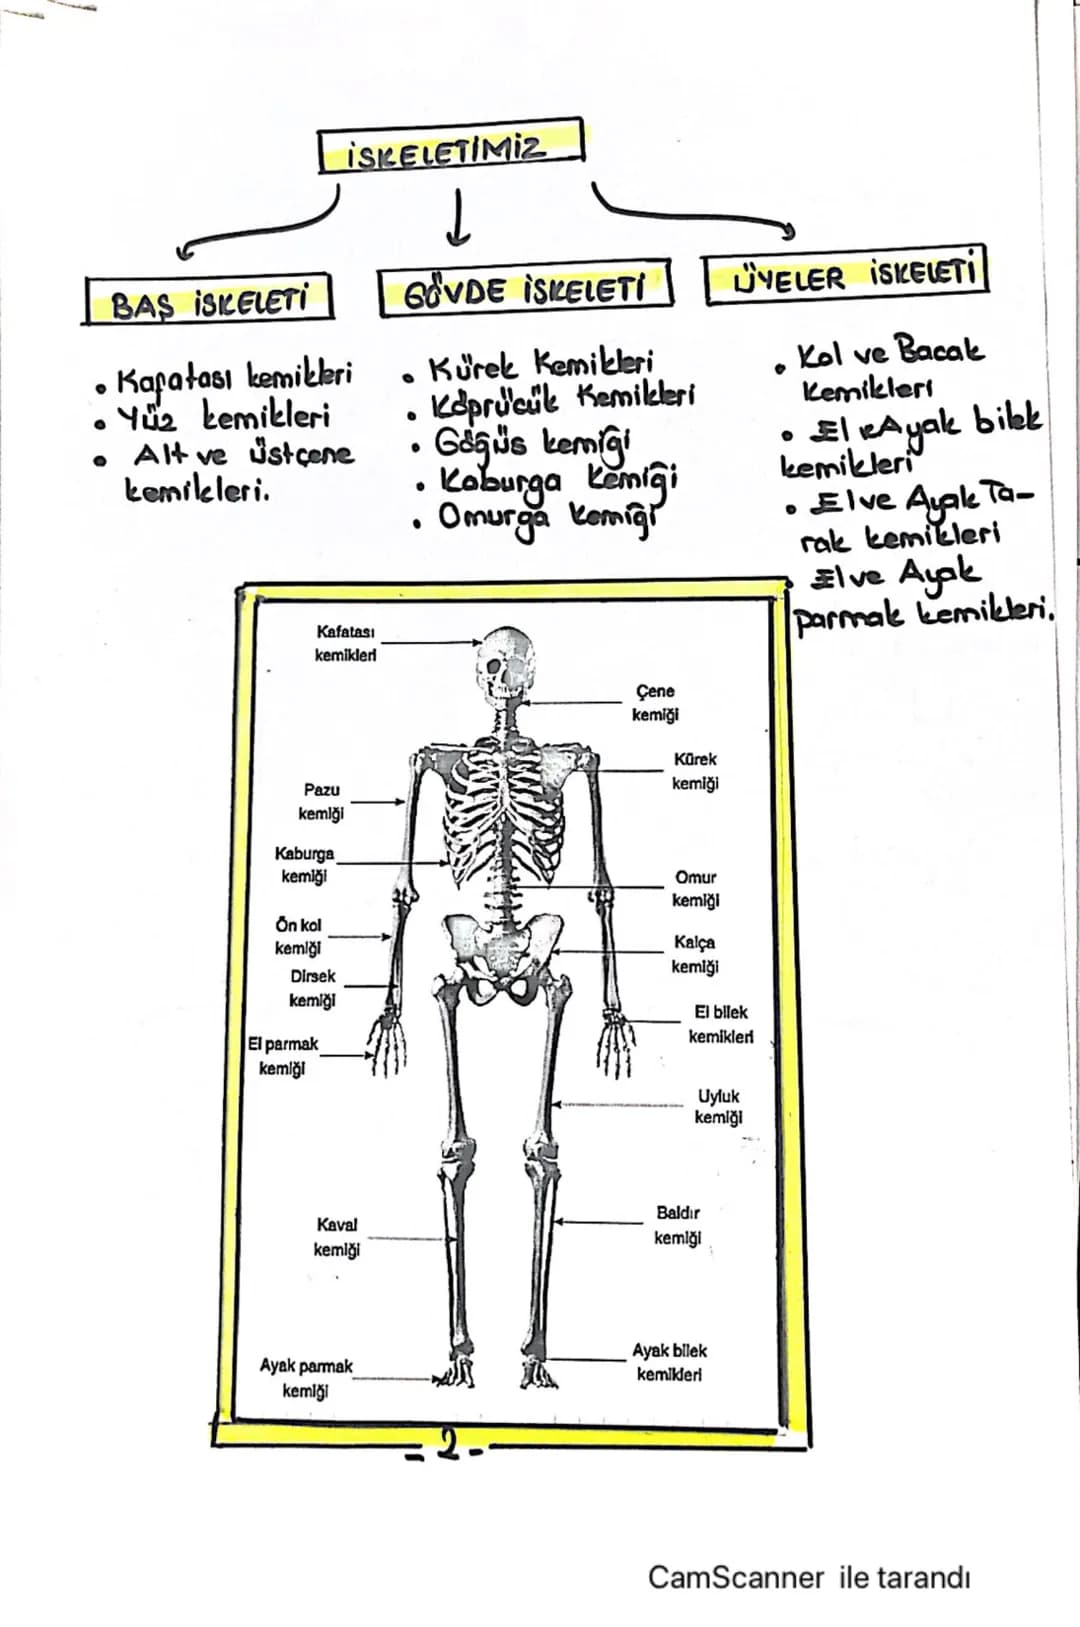 İSKELETİMİZ
BAŞ İSKELETİ
• Kafatası kemikleri
• Yüz kemikleri
• Alt ve üstçene
kemikleri.
GÖVDE İSKELETİ
• Kürek Kemikleri
• Köprücük Kemikleri
• Göğüs kemiği
• Kaburga Kemiği
• Omurga Kemiği
ÜYELER İSKELETİ
• Kol ve Bacak
Kemikleri
• El ve Ayak bilek
kemikleri
• El ve Ayak Ta-
rak kemikleri
El ve Ayak
parmak kemikleri.
Kafatası
kemikleri
Çene
kemiği
Kürek
kemiği
Pazu
kemiği
Kaburga
kemiği
Omur
kemiği
Ön kol
kemiği
Kalça
kemiği
Dirsek
kemiği
El bilek
kemikleri
El parmak
kemiği
Uyluk
kemiği
Baldır
kemiği
Kaval
kemiği
Ayak bilek
kemikleri
Ayak parmak
kemiği
-2-
CamScanner ile tarandı